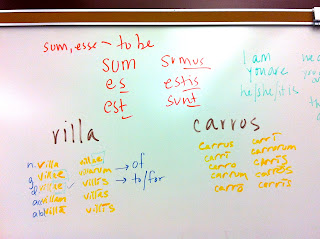 sum, esse – to be
sum sumus
es estis
est sunt
I am we
you are
he/she/it is
villa carros
n. villa villae carrus carri
g. villae villarum → of carri carrorum
d. villae villis → to/for carro carris
ac. villam villas carrum carros
ab. villā villis carro carris